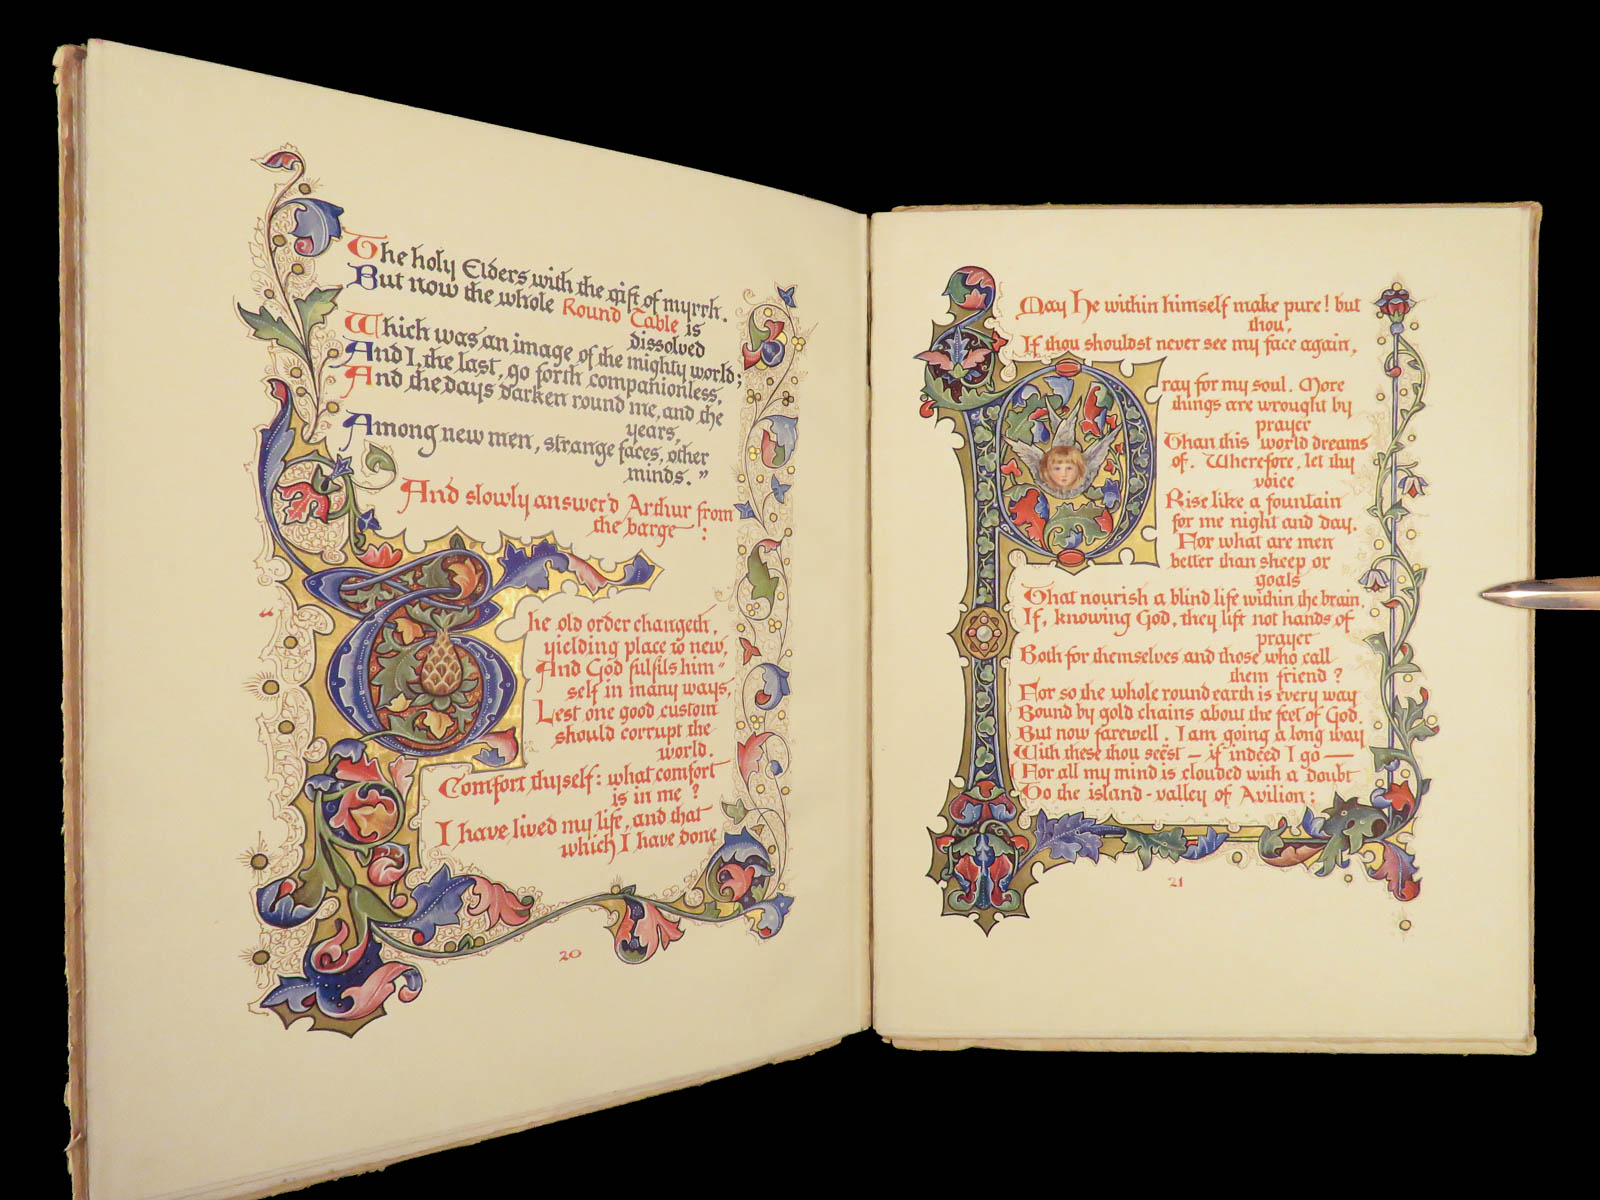 The holy Elders with the gift of myrrh.
But now the whole Round Table is
dissolved
Which was an image of the mighty world;
And I, the last, go forth companionless,
And the days darken round me, and the
years,
Among new men, strange faces, other
minds."
And slowly answer'd Arthur from
the barge:
"The old order changeth,
yielding place to new,
And God fulfils him"
self in many ways,
Lest one good custom
should corrupt the
world.
Comfort thyself: what comfort
is in me?
I have lived my life, and that
which I have done
20
May He within himself make pure! but
thou,
If thou shouldst never see my face again,
Pray for my soul. More
things are wrought by
prayer
Than this world dreams
of. Wherefore, let thy
voice
Rise like a fountain
for me night and day.
For what are men
better than sheep or
goats
That nourish a blind life within the brain,
If, knowing God, they lift not hands of
prayer
Both for themselves and those who call
them friend?
For so the whole round earth is every way
Bound by gold chains about the feet of God.
But now farewell. I am going a long way
With these thou seëst — if indeed I go —
(For all my mind is clouded with a doubt
To the island-valley of Avilion;
21